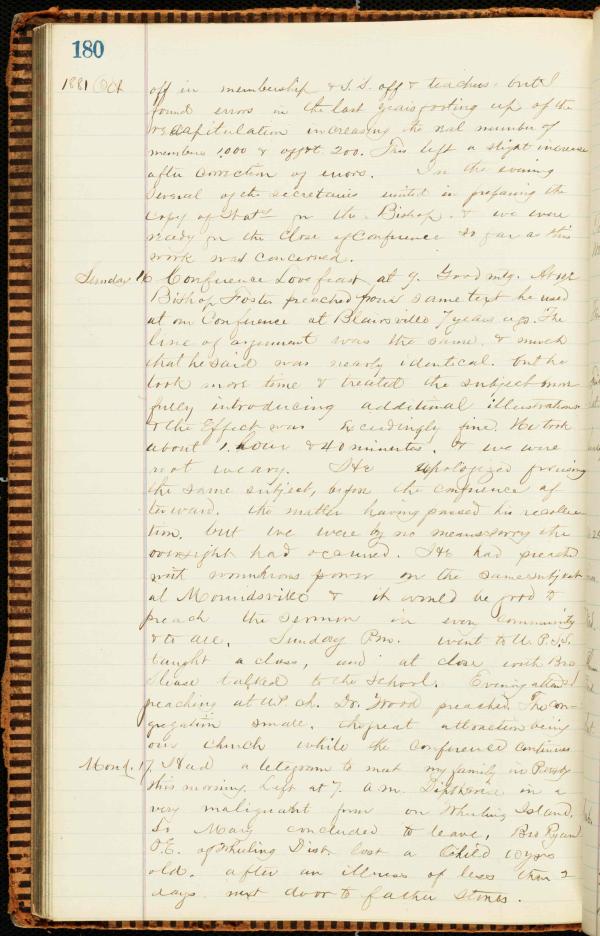 180
1881 Oct off in membership & S.S. off & teachers. but I
found errors in the last years footing up of the
recapitulation increasing the real number of
members 1,000 & off of 200. This left a slight increase
after correction of errors. In the evening
several of the secretaries united in preparing the
copy of Stats for the Bishop. & we were
ready for the close of Conference so far as this
work was concerned.
Sunday 16 Conference Lovefeast at 9. Good mtg. At
Bishop Foster preached from same text he used
at our Conference at Blairsville 7 years ago. The
line of argument was the same, & much
that he said was nearly identical. but he
took more time & treated the subject more
fully introducing additional illustrations
& the effect was exceedingly fine. He took
about 1. hour & 40 minutes. & we were
not weary. He apologized for using
the same subject, before the conference af
terward. the matter having passed his recollec
tion. but we were by no means sorry the
oversight had occurred. He had preached
with wondrous power on the same subject
at Moundsville & it would be good to
preach the sermon in every community
& to all. Sunday Pm. went to U.P.S.S.
taught a class, and at close with Bro
talked to the school. Evening attend
preaching at U.P. ch. Dr. preached. The con-
gregation small. the great attraction being
our church while the conference continues
Mond. 17. Had a telegram to meet my family in
this morning. Left at 7. a.m. Diptheria in a
very malignant form on Wheeling Island.
So Mary concluded to leave. Bro Ryan
P.E. of Wheeling Dist. lost a child 10 yrs
old. after an illness of less than 2
days. next door to father Stones.